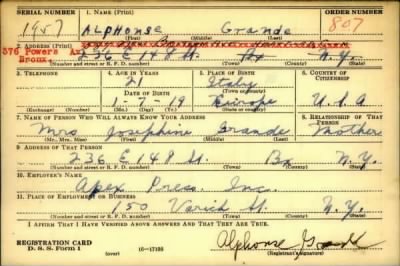 SERIAL NUMBER 1. NAME (Print) ORDER NUMBER
1957 ALPHONSE Grande 807
(First) (Middle) (Last)
2. ADDRESS (Print)
376 Powers Av.
Bronx.
236 E 148 St. Bx N.Y.
(Number and street or R. F. D. number) (Town) (County) (State)
3. TELEPHONE 4. AGE IN YEARS 5. PLACE OF BIRTH 6. COUNTRY OF CITIZENSHIP
21 Italy
DATE OF BIRTH (Town or county)
1-7-19 Europe U.S.A
(Exchange) (No.) (Mo.) (Day) (Yr.) (State or country)
7. NAME OF PERSON WHO WILL ALWAYS KNOW YOUR ADDRESS 8. RELATIONSHIP OF THAT PERSON
Mrs Josephine Grande Mother
(Mr., Mrs., Miss) (First) (Middle) (Last)
9. ADDRESS OF THAT PERSON
236 E 148 St. Bx N.Y.
(Number and street or R. F. D. number) (Town) (County) (State)
10. EMPLOYER'S NAME
Apex Press. Inc.
11. PLACE OF EMPLOYMENT OR BUSINESS
150 Varick St. N.Y.
(Number and street or R. F. D. number) (Town) (County) (State)
I AFFIRM THAT I HAVE VERIFIED ABOVE ANSWERS AND THAT THEY ARE TRUE.
REGISTRATION CARD
D. S. S. FORM 1 (over) 16-17105
Alphonse Grande
(Registrant's signature)